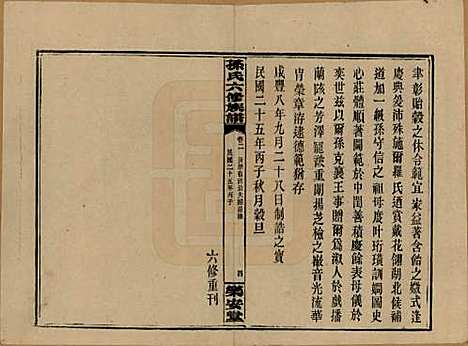 聿彰貽穀之休合範宜家益著含飴之徽式逢
慶典爰沛殊施爾羅氏迺賞戴花翎湖北候補
加一級孫守信之祖母度叶珩璜訓嫻圖史
心莊體順著閫範於中閨善積慶餘表母儀於
奕世茲以爾孫克襄王事贈爾爲淑人於戲播
蘭陔之芳澤寵誥重闈揚芝檢之徽音光流華
冑榮章洊逮德範猶存
咸豐八年九月二十八日制誥之寶
民國二十五年丙子秋月穀旦
六修重刊
孫氏六修族譜
卷二
民國二十五年丙子
四